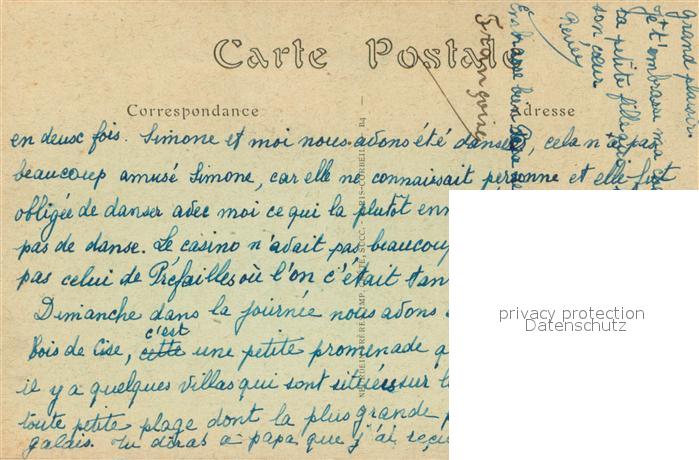 Carte Postale
Correspondance
Adresse
en deux fois. Simone et moi nous avons été danser, cela n'a pas
beaucoup amusé Simone, car elle ne connaissait personne et elle fut
obligée de danser avec moi ce qui la plutôt
pas de danse. Le casino n'avait pas beaucoup
pas celui de Préfailles où l'on c'était tan
Dimanche dans la journée nous avons
Bois de Cise, c'est une petite promenade
il y a quelques villas qui sont situées sur
toute petite plage dont la plus grande
galais. Tu diras à papa que j'ai reçu
grand plaisir.
Je t'embrasse
ta petite fille
son cœur
Renée
Embrasse bien
privacy protection
Datenschutz